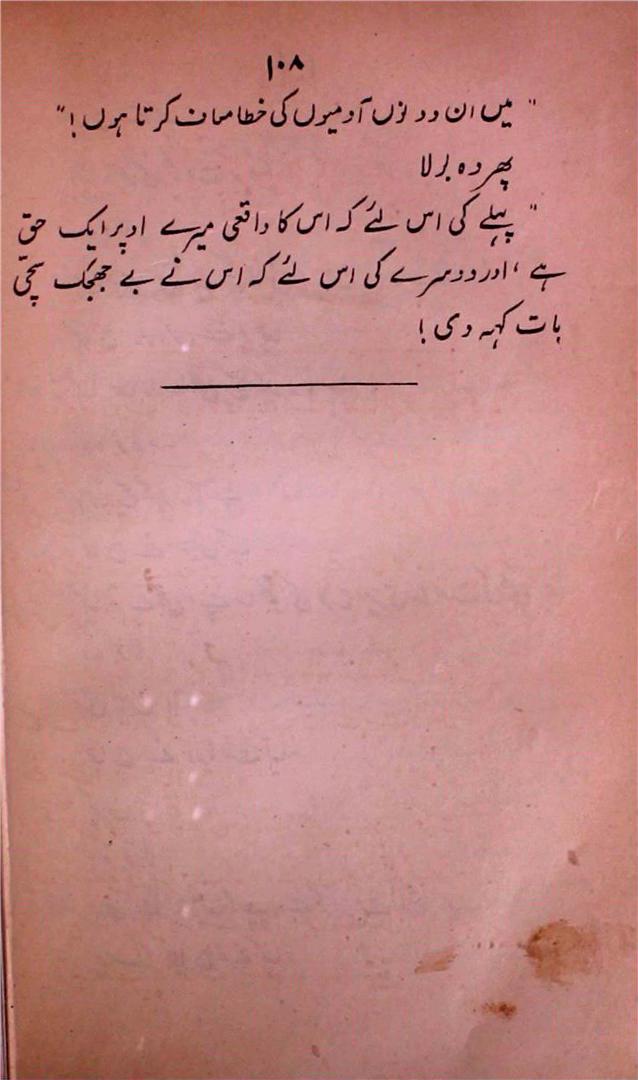 ۱۰۸
" میں ان دونوں آدمیوں کی خطا معاف کرتا ہوں! "
پھر وہ بولا
" پہلے کی اس لئے کہ اس کا واقعی میرے اوپر ایک حق
ہے ، اور دوسرے کی اس لئے کہ اس نے بے جھجک سچی
بات کہہ دی !